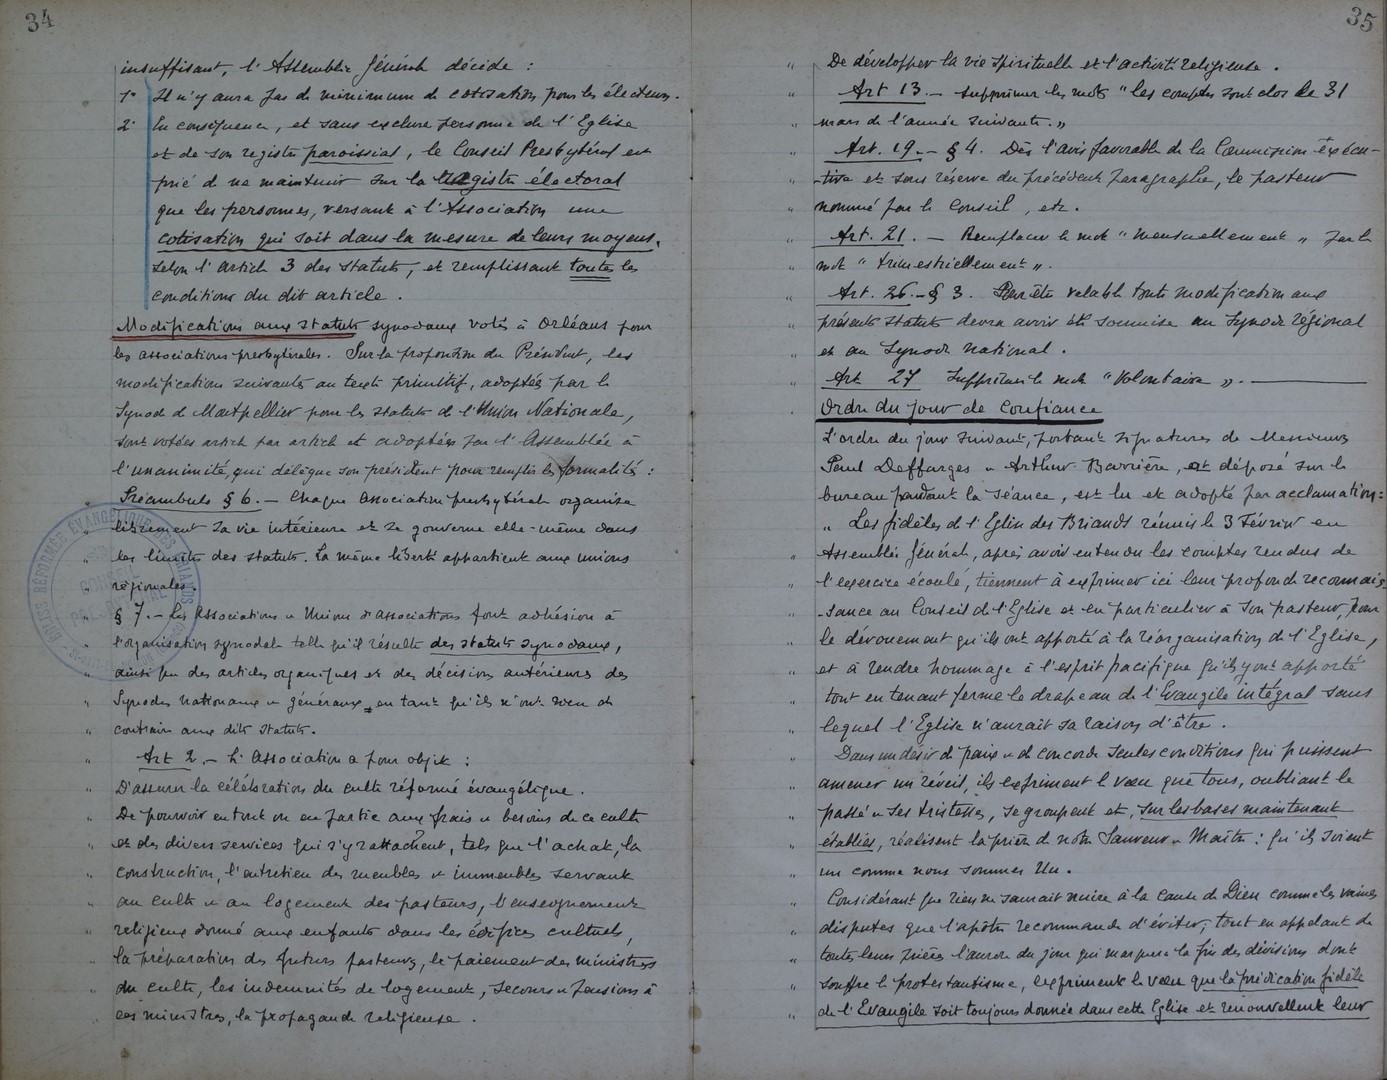 34
insuffisant, l'Assemblée Générale décide :
1° Il n'y aura pas de minimum de cotisation pour les électeurs.
2° En conséquence, et sans exclure personne de l'Eglise
et de son registre paroissial, le Conseil Presbytéral est
prié de ne maintenir sur le registre électoral
que les personnes, versant à l'Association une
cotisation qui soit dans la mesure de leurs moyens,
selon l'article 3 des statuts, et remplissant toutes les
conditions du dit article.
Modifications aux statuts synodaux votés à Orléans pour
les associations presbytérales. Sur la proposition du Président, les
modifications suivantes au texte primitif, adoptées par le
Synode de Montpellier pour les statuts de l'Union Nationale,
sont votées article par article et adoptées par l'Assemblée à
l'unanimité, qui délègue son président pour remplir les formalités :
" Préambule § 6. — Chaque association presbytérale organise
" librement sa vie intérieure et se gouverne elle-même dans
" les limites des statuts. La même liberté appartient aux unions
" régionales.
" § 7. — Les Associations & Unions d'associations font adhésion à
" l'organisation synodale telle qu'il résulte des statuts synodaux,
" ainsi que des articles organiques et des décisions antérieures des
" Synodes nationaux & généraux, en tant qu'ils n'ont rien de
" contraire aux dits statuts.
" Art 2. — L'Association a pour objet :
" D'assurer la célébration du culte réformé évangélique.
" De pourvoir en tout ou en partie aux frais & besoins de ce culte
" et des divers services qui s'y rattachent, tels que l'achat, la
" construction, l'entretien des meubles & immeubles servant
" au culte & au logement des pasteurs, l'enseignement
" religieux donné aux enfants dans les édifices cultuels,
" la préparation des futurs pasteurs, le paiement des ministres
" du culte, les indemnités de logement, secours & pensions à
" ces ministres, la propagande religieuse.
EGLISE RÉFORMÉE ÉVANGÉLIQUE DES BRIANDS
CONSEIL
PRESBYTÉRAL
35
" De développer la vie spirituelle et l'activité religieuse.
" Art 13. — Supprimer les mots "les comptes sont clos le 31
" mars de l'année suivante."
" Art. 19. — § 4. Dès l'avis favorable de la Commission exécu-
" -tive et sous réserve du précédent paragraphe, le pasteur
" nommé par le Conseil, etc.
" Art. 21. — Remplacer le mot "mensuellement" par le
" mot "trimestriellement".
" Art. 26. — § 3. Pour être valable toute modification aux
" présents statuts devra avoir été soumise au Synode régional
" et au Synode national.
" Art 27 Supprimer le mot "Volontaire". —
Ordre du jour de confiance
L'ordre du jour suivant, portant signatures de Messieurs
Paul Deffarges & Arthur Barrière, et déposé sur le
bureau pendant la séance, est lu et adopté par acclamation :
" Les fidèles de l'Eglise des Briands réunis le 3 Février en
" Assemblée Générale, après avoir entendu les comptes rendus de
" l'exercice écoulé, tiennent à exprimer ici leur profonde reconnais-
" -sance au Conseil de l'Eglise et en particulier à son pasteur, pour
" le dévouement qu'ils ont apporté à la réorganisation de l'Eglise,
" et à rendre hommage à l'esprit pacifique qu'ils y ont apporté
" tout en tenant ferme le drapeau de l'Evangile intégral sans
" lequel l'Eglise n'aurait sa raison d'être.
" Dans un désir de paix & de concorde seules conditions qui puissent
" amener un réveil, ils expriment le vœu que tous, oubliant le
" passé & ses tristesses, se groupent et, sur les bases maintenant
" établies, réalisent la prière de notre Sauveur & Maître : qu'ils soient
" un comme nous sommes Un.
" Considérant que rien ne saurait nuire à la cause de Dieu comme les vaines
" disputes que l'apôtre recommande d'éviter, tout en appelant de
" toutes leurs prières l'aurore du jour qui marquera la fin des divisions dont
" souffre le protestantisme, expriment le vœu que la prédication fidèle
" de l'Evangile soit toujours donnée dans cette Eglise et renouvellent leur